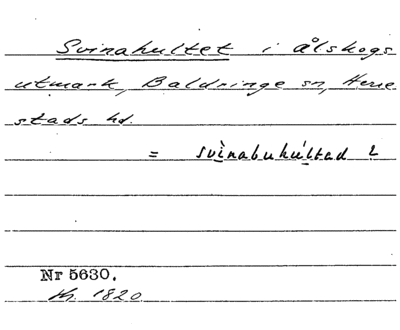 Svinahultet i Ålskogs
utmark, Baldringe sn, Herre
stads hd.
= svìnabuhúltad 2
Nr 5630.
Kh. 1820